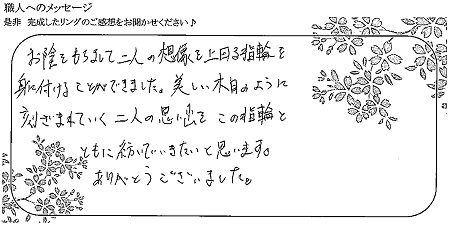 職人へのメッセージ
是非 完成したリングのご感想をお聞かせください♪
お陰さもちまして二人の想像を上回る指輪を
身に付けることができました。美しい木目のように
刻ざまれていく二人の思い出を この指輪と
ともに紡いでいきたいと思います。
ありがとうございました。